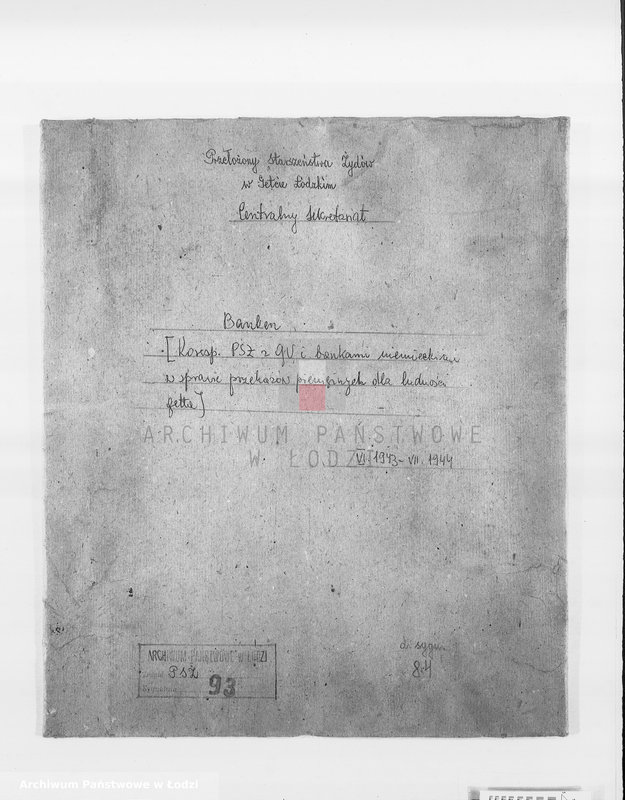 Przełożony Starszeństwa Żydów
w Getcie Łódzkim
Centralny Sekretariat
Banken
[Koresp. PSŻ z GV i bankami niemieckimi
w sprawie przekazów pieniężnych dla ludności
getta]
ARCHIWUM PAŃSTWOWE
W ŁODZI
VI 1943 - VII. 1944
ARCHIWUM PAŃSTWOWE W ŁODZI
PSŻ
93
d. sygn.
84
Archiwum Państwowe w Łodzi